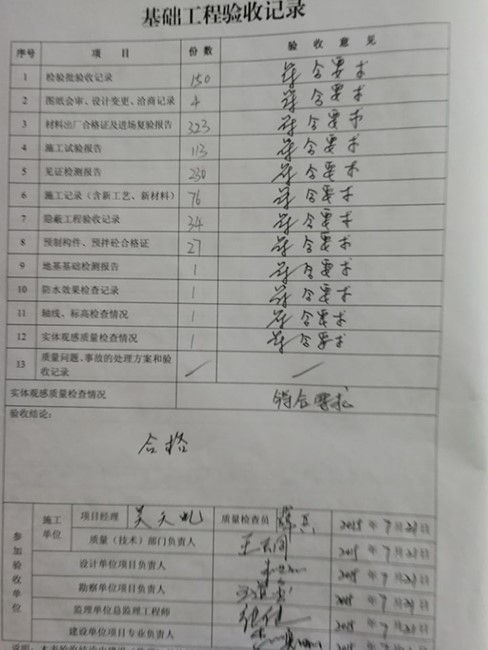 基础工程验收记录
序号 项目 份数 验收意见
1 检验批验收记录 150 符合要求
2 图纸会审、设计变更、洽商记录 4 符合要求
3 材料出厂合格证及进场复验报告 323 符合要求
4 施工试验报告 113 符合要求
5 见证检测报告 230 符合要求
6 施工记录（含新工艺、新材料） 76 符合要求
7 隐蔽工程验收记录 34 符合要求
8 预制构件、预拌砼合格证 27 符合要求
9 地基基础检测报告 1 符合要求
10 防水效果检查记录 1 符合要求
11 轴线、标高检查情况 1 符合要求
12 实体观感质量检查情况 1 符合要求
13 质量问题、事故的处理方案和验 / /
收记录
实体观感质量检查情况 符合要求
验收结论：
合格
参加验收单位
施工单位 项目经理 吴天 质量检查员 2015年7月21日
质量（技术）部门负责人 2015年7月21日
设计单位项目负责人 2015年7月21日
勘察单位项目负责人 2015年7月21日
监理单位总监理工程师 2015年7月21日
建设单位项目专业负责人 2015年7月21日